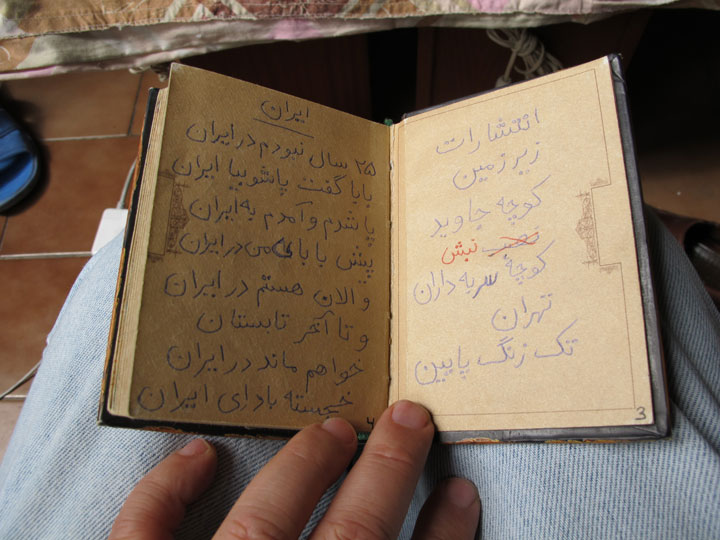 انتشارات
زیر زمین
کوچه جاوید
نبش
کوچه سربه داران
تهران
تک زنگ پایین
3
ایران
۲۵ سال نبودم در ایران
بابا گفت پاشو بیا ایران
پا شدم و آمدم به ایران
پیش بابای من در ایران
و الان هستم در ایران
و تا آخر تابستان
خواهم ماند در ایران
خجسته بادا ای ایران